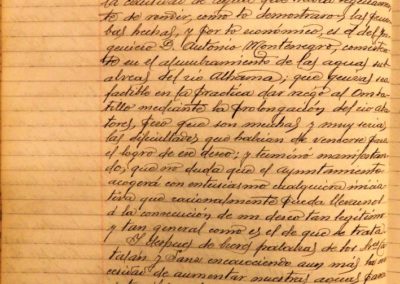 la cantidad de agua que había
to de rendir, como lo demostraron las prue
bas hechas, y por lo económico, es el del pe
D. Antonio Montenegro, consiste
te en el alumbramiento de las aguas sub
del río Alhama; que quizás sea
en la practica dar riego al
mediante la prolongación del río
, pero que son muchas y muy serias
las dificultades que habían de vencerse para
el logro de ese deseo; y terminó manifestan
do, que no duda que el ayuntamiento
acogerá con entusiasmo cualquiera inicia
tiva que racionalmente pueda
á la consecución de un deseo tan legítimo
y tan general como es el de que se trata.
Despues de breves palabras de los
y Sanz encareciendo aun más la ne
cesidad de aumentar nuestras aguas para